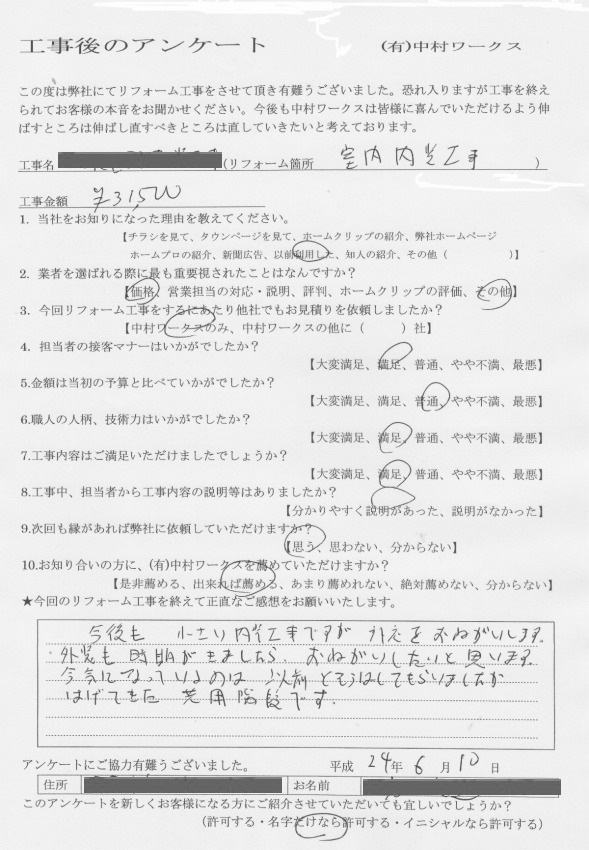 工事後のアンケート (有)中村ワークス
この度は弊社にてリフォーム工事をさせて頂き有難うございました。恐れ入りますが工事を終え
られてお客様の本音をお聞かせください。今後も中村ワークスは皆様に喜んでいただけるよう伸
ばすところは伸ばし直すべきところは直していきたいと考えております。
工事名 (リフォーム箇所 室内内装工事 )
工事金額
1. 当社をお知りになった理由を教えてください。
【チラシを見て、タウンページを見て、ホームクリップの紹介、弊社ホームページ
ホームプロの紹介、新聞広告、以前利用した、知人の紹介、その他（ ）】
2. 業者を選ばれる際に最も重要視されたことはなんですか？
【価格、営業担当の対応・説明、評判、ホームクリップの評価、その他】
3. 今回リフォーム工事をするにあたり他社でもお見積りを依頼しましたか？
【中村ワークスのみ、中村ワークスの他に（ ）社】
4. 担当者の接客マナーはいかがでしたか？
【大変満足、満足、普通、やや不満、最悪】
5.金額は当初の予算と比べていかがでしたか？
【大変満足、満足、普通、やや不満、最悪】
6.職人の人柄、技術力はいかがでしたか？
【大変満足、満足、普通、やや不満、最悪】
7.工事内容はご満足いただけましたでしょうか？
【大変満足、満足、普通、やや不満、最悪】
8.工事中、担当者から工事内容の説明等はありましたか？
【分かりやすく説明があった、説明がなかった】
9.次回も縁があれば弊社に依頼していただけますか？
【思う、思わない、分からない】
10.お知り合いの方に、(有)中村ワークスを薦めていただけますか？
【是非薦める、出来れば薦める、あまり薦めれない、絶対薦めない、分からない】
★今回のリフォーム工事を終えて正直なご感想をお願いいたします。
今後も 小さい内装工事ですが 対応をおねがいします。
外装も時期がきましたら、おねがいしたいと思います。
今気になっているのは 以前とそうはしてもらいましたが
はげてきた 共用階段です。
アンケートにご協力有難うございました。 平成 24年 6 月 10 日
住所 お名前
このアンケートを新しくお客様になる方にご紹介させていただいても宜しいでしょうか？
(許可する・名字だけなら許可する・イニシャルなら許可する)